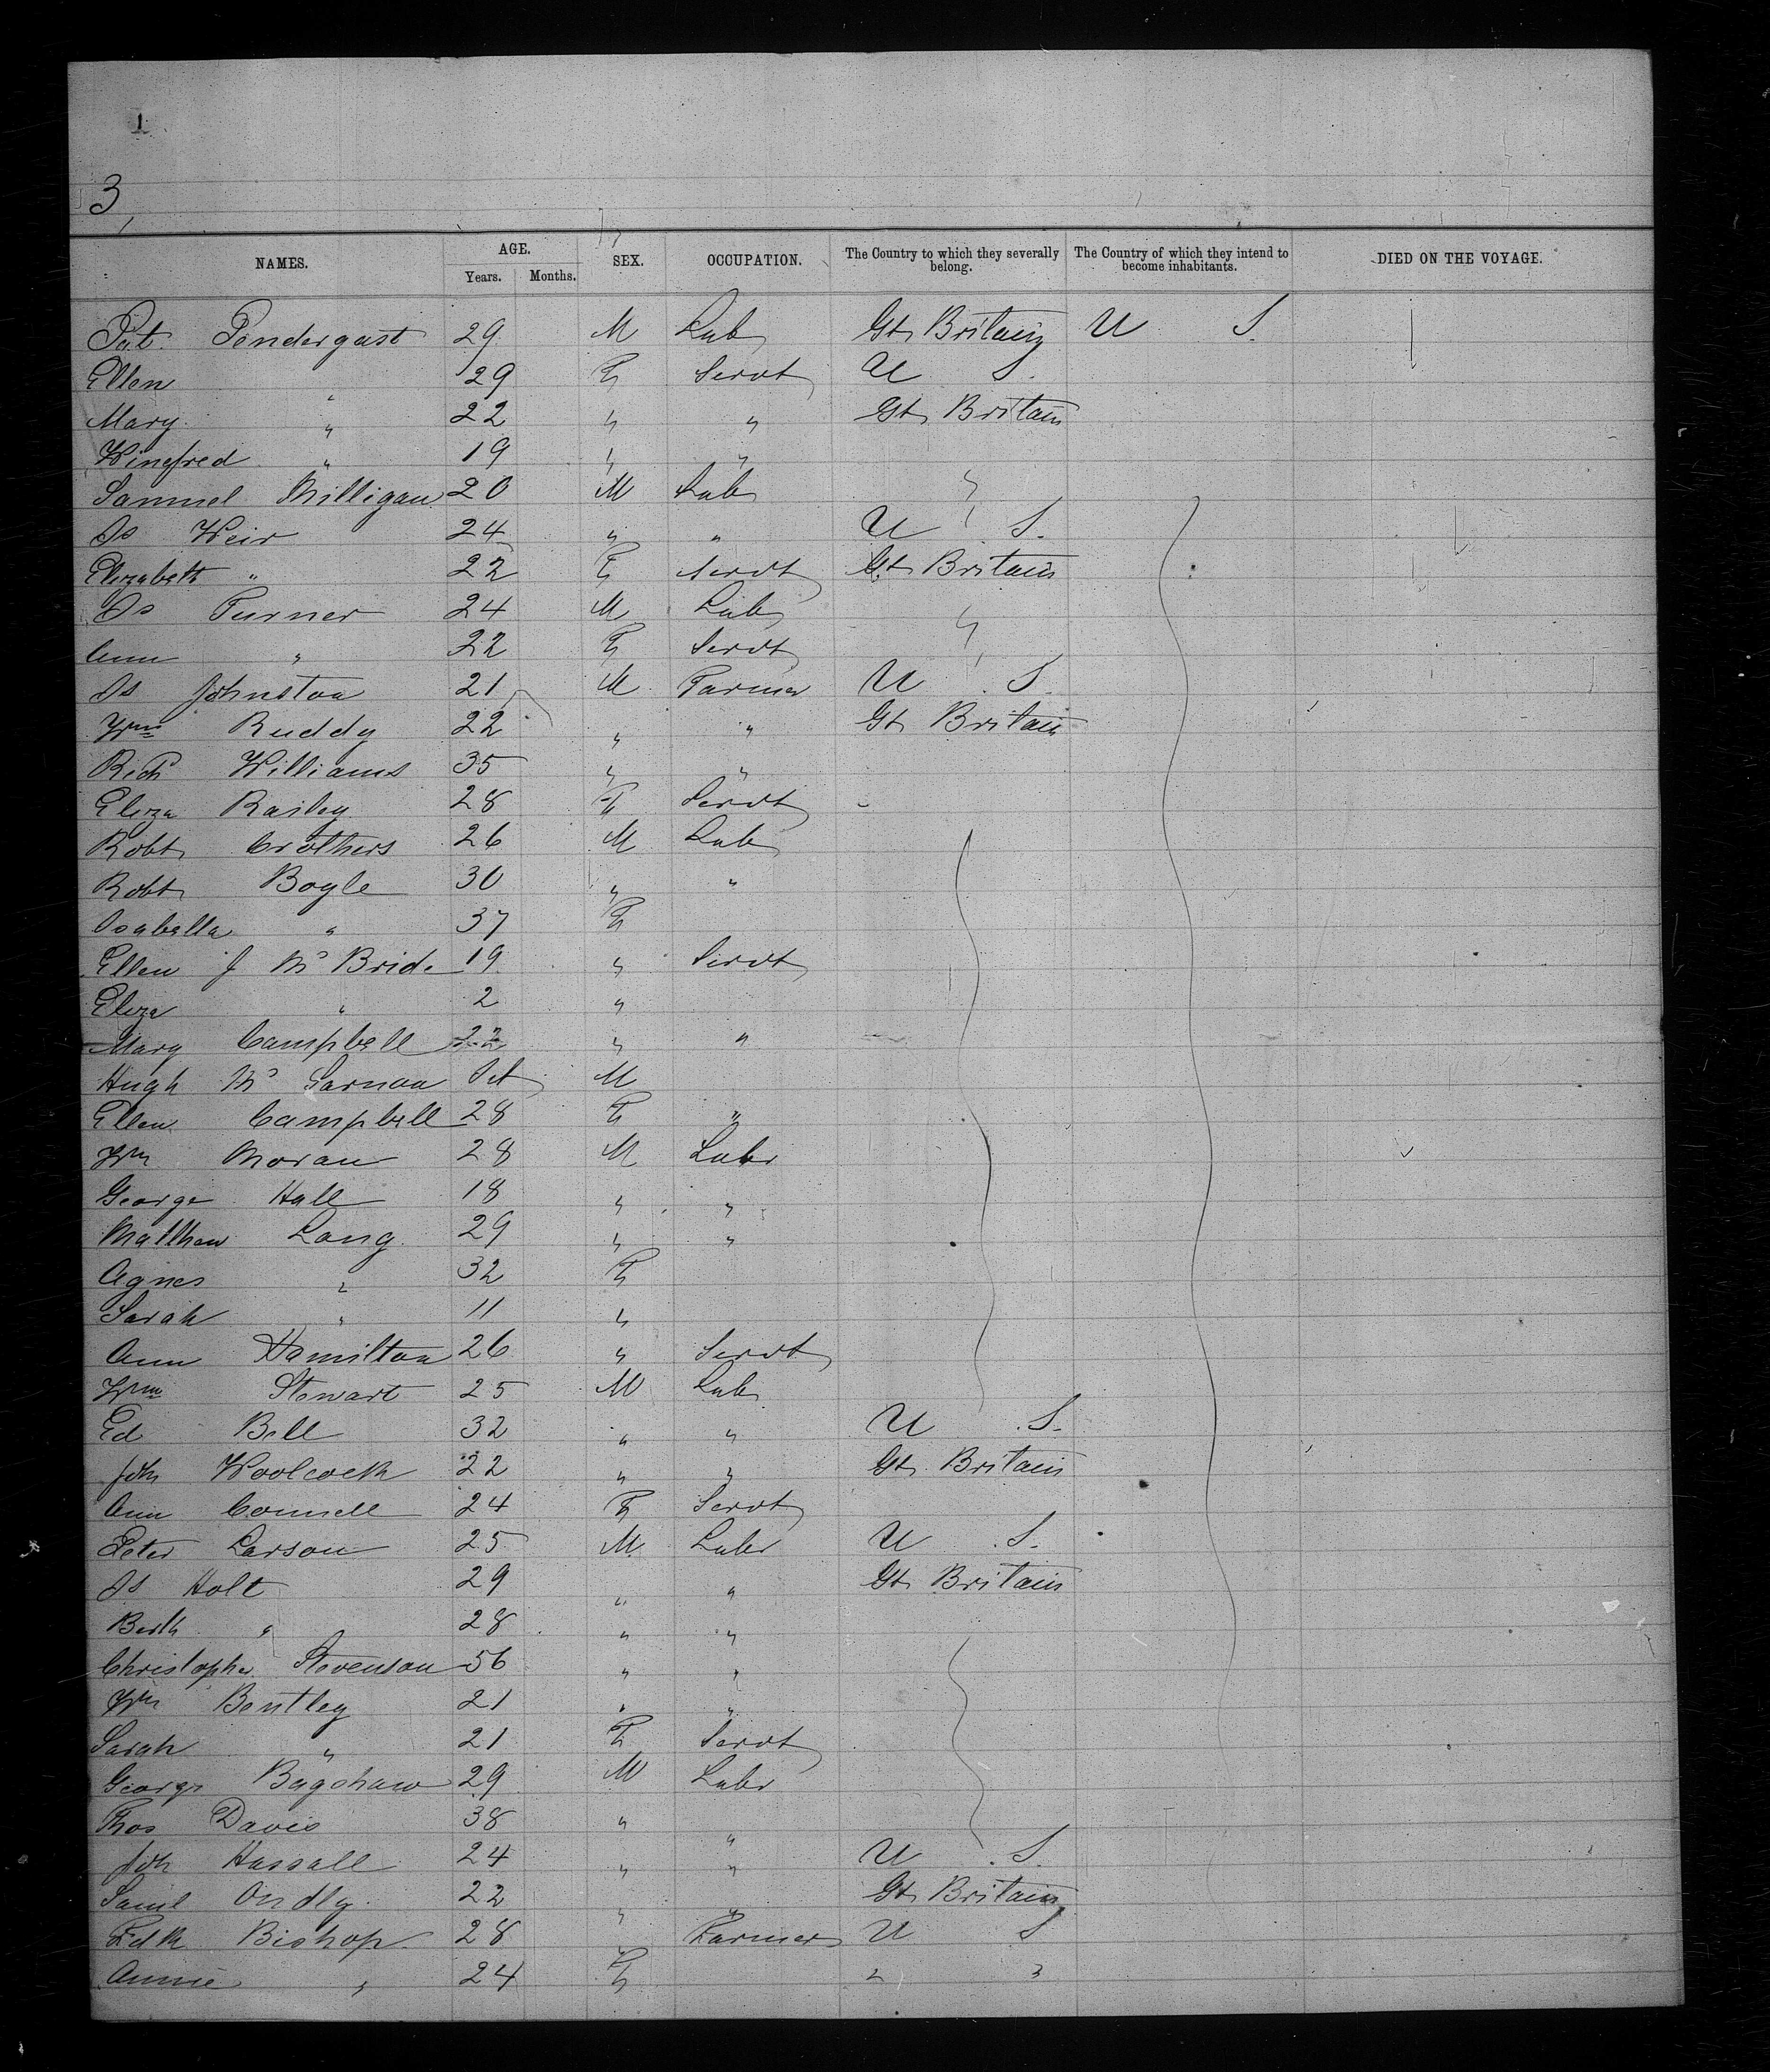 1
3
NAMES. AGE. Years. Months. SEX. OCCUPATION. The Country to which they severally belong. The Country of which they intend to become inhabitants. DIED ON THE VOYAGE.
Pat. Pendergast 29 M Lab Gt Britain U S.
Ellen " 29 F Servt U S.
Mary " 22 " " Gt Britain
Winefred " 19 " "
Samuel Milligan 20 M Lab "
Js Weir 24 " " U S.
Elizabeth " 22 F Servt Gt Britain
Js Turner 24 M Lab "
Ann " 22 F Servt
Js Johnston 21 M Farmer U S.
Wm Ruddy 22 " " Gt Britain
Richd Williams 35 " "
Eliza Railey 28 F Servt
Robt Crothers 26 M Lab
Robt Boyle 30 " "
Isabella " 37 F
Ellen J McBride 19 " Servt
Eliza " 2 "
Mary Campbell 22 " "
Hugh Mc M
Ellen Campbell 28 F "
Wm Moran 28 M Labr
George Hall 18 " "
Matthew Lang 29 " "
Agnes " 32 F
Sarah " 11 "
Ann Hamilton 26 " Servt
Wm Stewart 25 M Lab
Ed Bell 32 " " U S.
Jon Woolcock 22 " " Gt Britain
Ann Connell 24 F Servt
Peter Larson 25 M Labr U S.
Js Holt 29 " " Gt Britain
Berth " 28 " "
Christopher Stevenson 56 " "
Wm Bentley 21 " "
Sarah " 21 F Servt
George Bagshaw 29 M Labr
Thos Davis 38 " "
Jon Hassall 24 " " U S.
Saml 22 " " Gt Britain
Fdk Bishop 28 " Farmer U S
Annie " 24 F " "